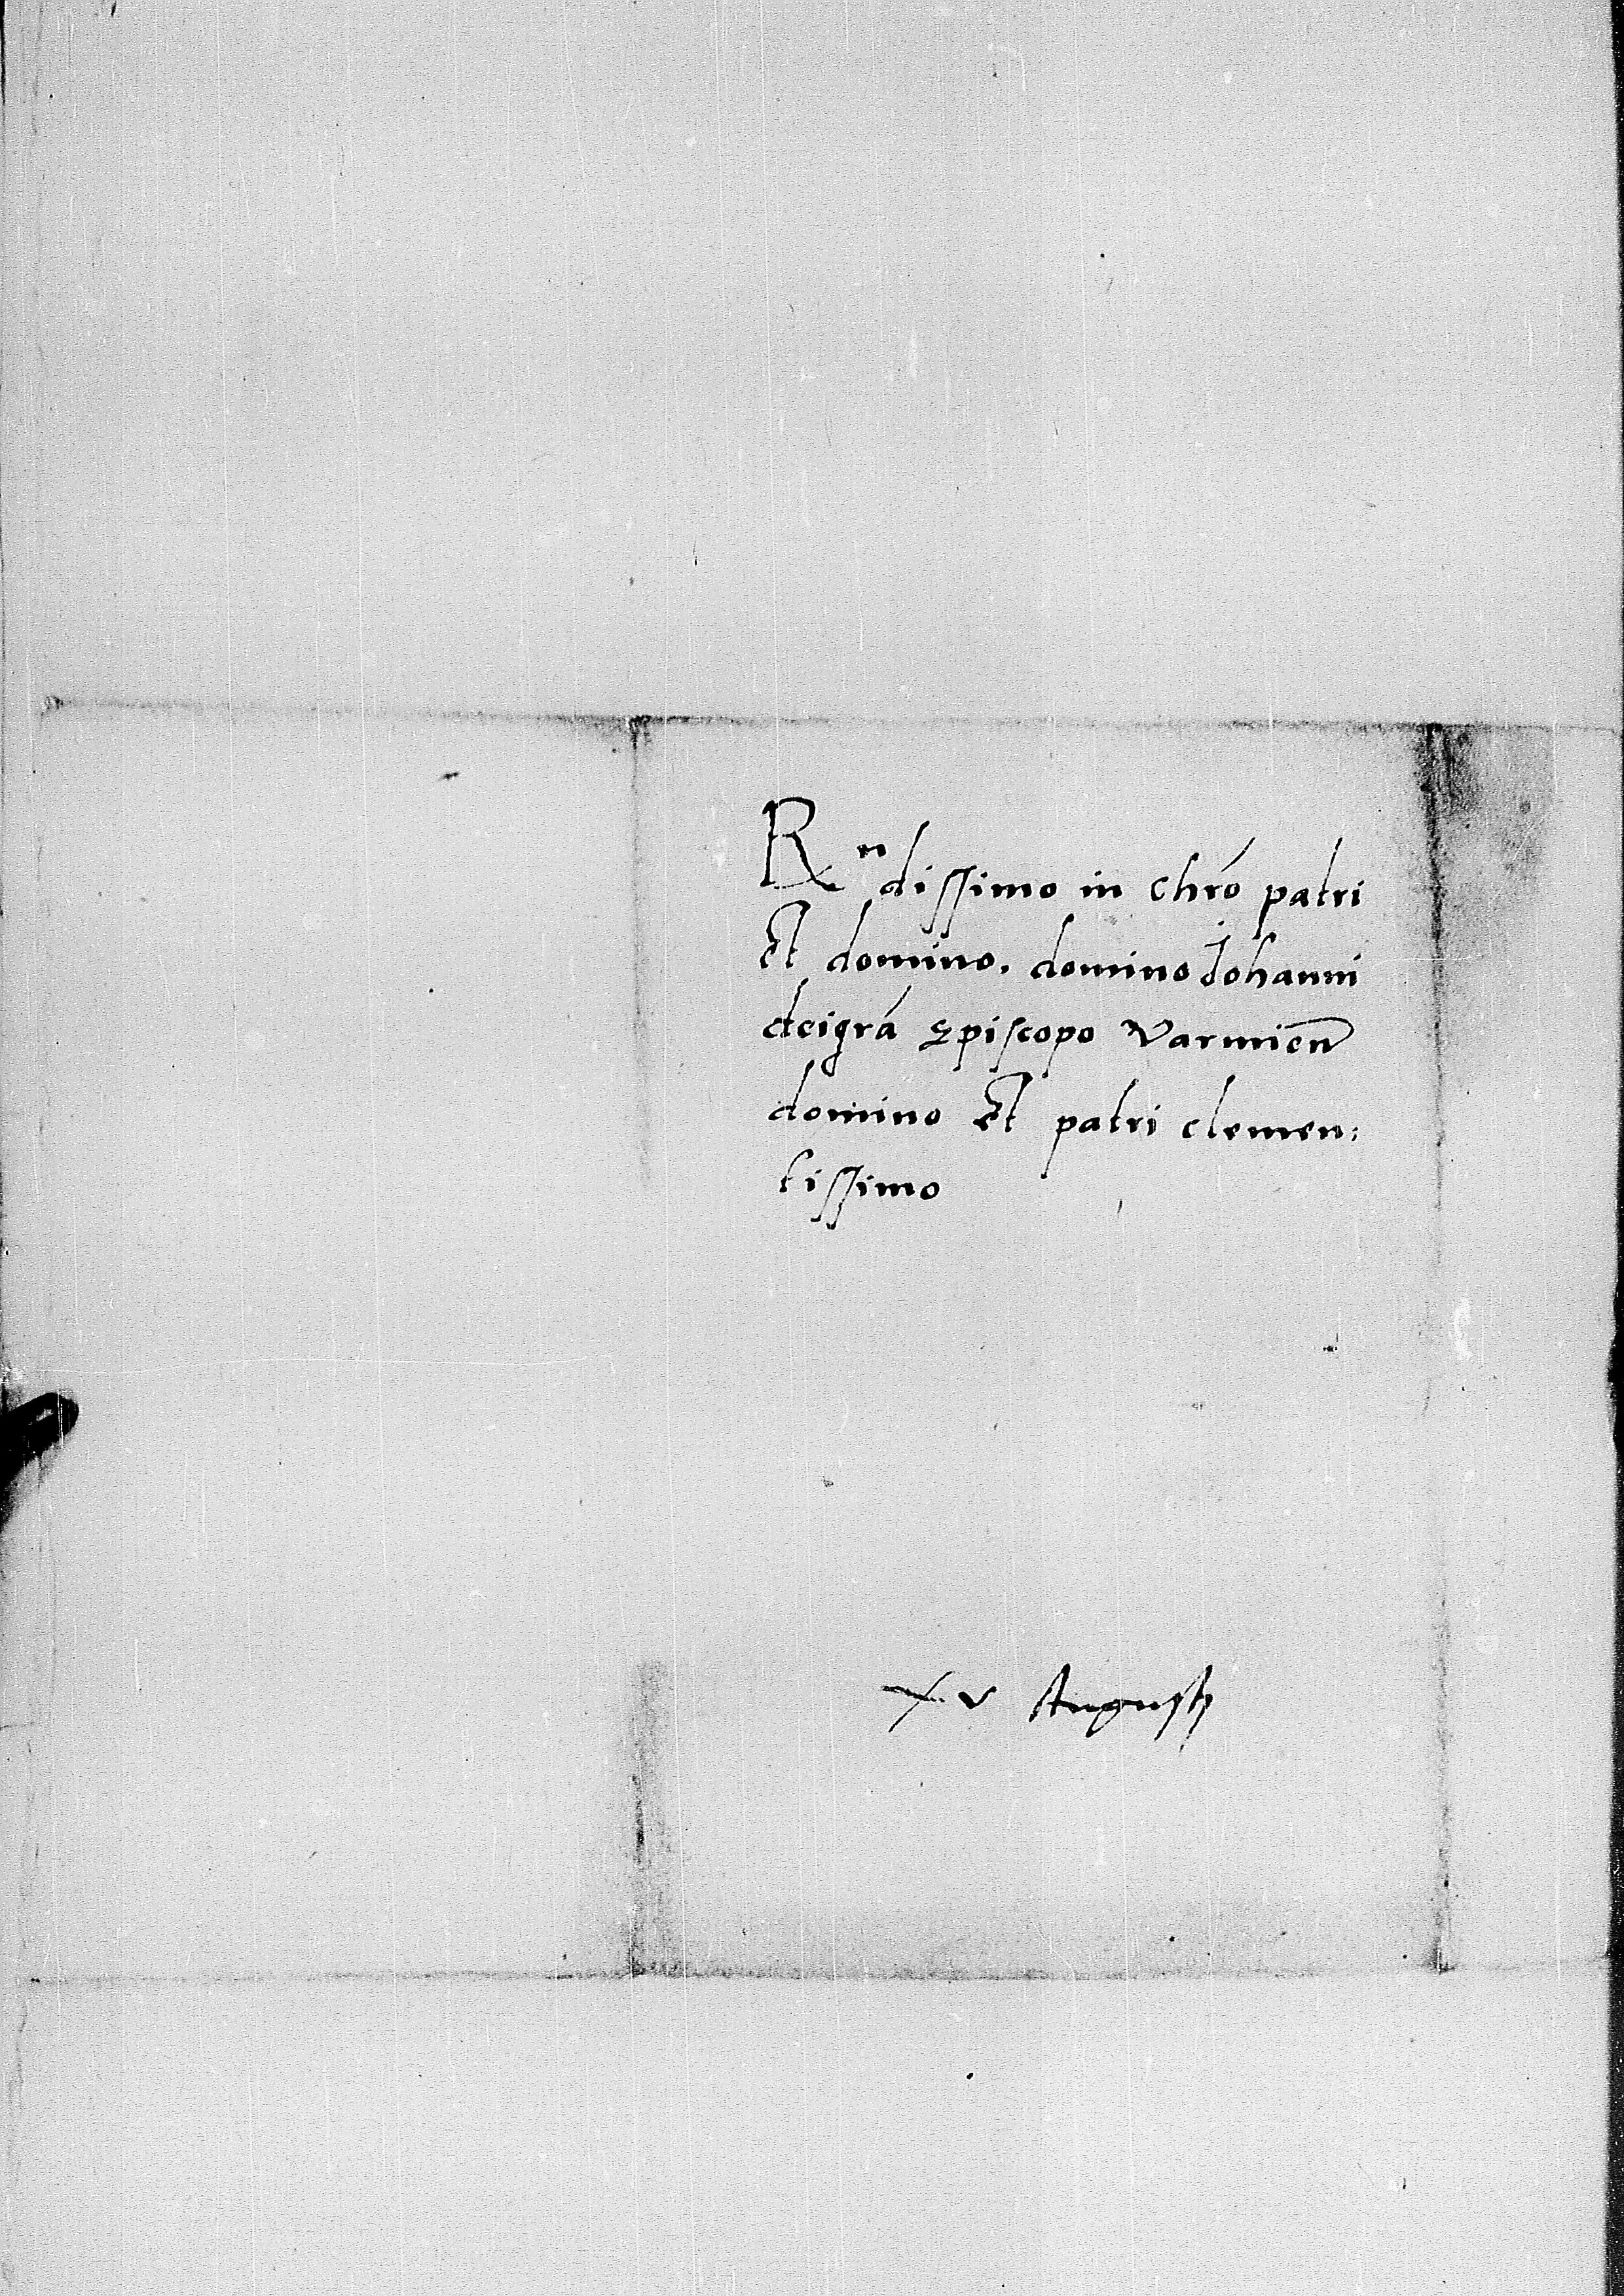 Rndissimo in chró patri
et domino. domino Johanni
deigrá Episcopo Varmien
domino et patri clemen:
tissimo
xv Augusti